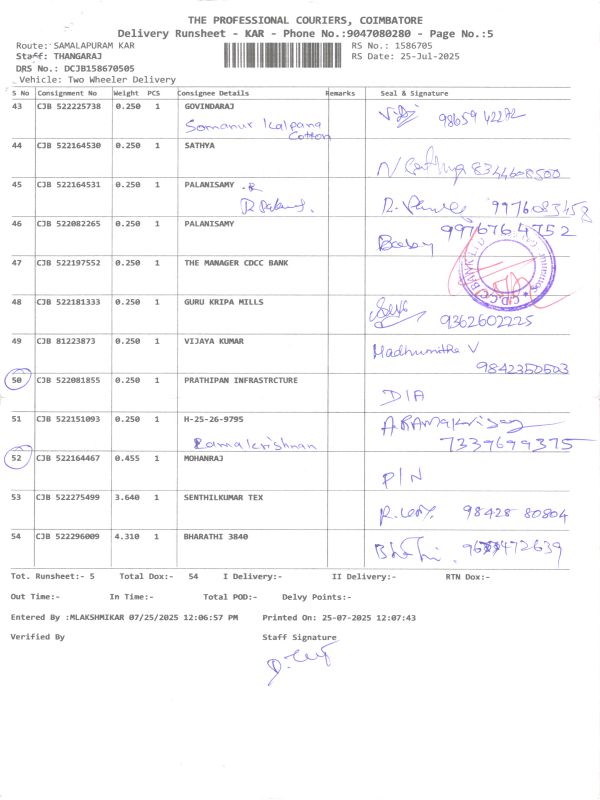 THE PROFESSIONAL COURIERS, COIMBATORE
Delivery Runsheet - KAR - Phone No.:9047080280 - Page No.:5
Route: SAMALAPURAM KAR RS No.: 1586705
Staff: THANGARAJ RS Date: 25-Jul-2025
DRS No.: DCJB158670505
Vehicle: Two Wheeler Delivery
S No Consignment No Weight PCS Consignee Details Remarks Seal & Signature
43 CJB 522225738 0.250 1 GOVINDARAJ
Somanur Kalpana Cotton 98659 42272
44 CJB 522164530 0.250 1 SATHYA
N Sathya 8344608500
45 CJB 522164531 0.250 1 PALANISAMY
9976083458
46 CJB 522082265 0.250 1 PALANISAMY 9976764752
47 CJB 522197552 0.250 1 THE MANAGER CDCC BANK
48 CJB 522181333 0.250 1 GURU KRIPA MILLS
9362602225
49 CJB 81223873 0.250 1 VIJAYA KUMAR
Madhumitha V
9842350503
50 CJB 522081855 0.250 1 PRATHIPAN INFRASTRCTURE
D/A
51 CJB 522151093 0.250 1 H-25-26-9795
Ramakrishnan 7339699375
52 CJB 522164467 0.455 1 MOHANRAJ
P/N
53 CJB 522275499 3.640 1 SENTHILKUMAR TEX
98428 80804
54 CJB 522296009 4.310 1 BHARATHI 3840
Tot. Runsheet:- 5 Total Dox:- 54 I Delivery:- II Delivery:- RTN Dox:-
Out Time:- In Time:- Total POD:- Delvy Points:-
Entered By :MLAKSHMIKAR 07/25/2025 12:06:57 PM Printed On: 25-07-2025 12:07:43
Verified By Staff Signature